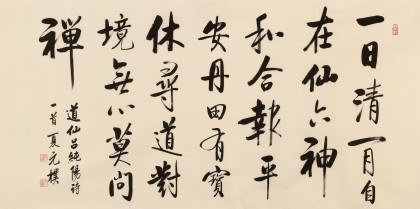 一日清閒自
在仙六神
和合報平
安丹田有寶
休尋道對
境無心莫問
禅
道仙呂純陽詩
一首夏元樸